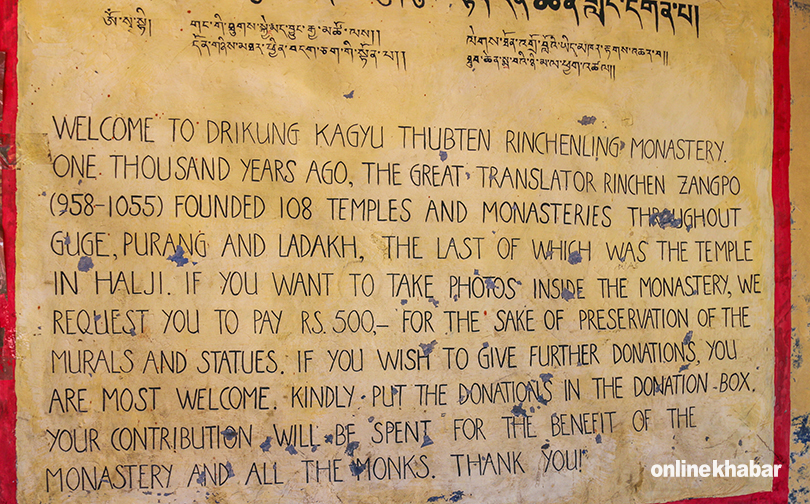 ཨོཾ་སྭ་སྟི།
གང་གི་ཐུགས་སྐྱེ་མང་བྱུང་རྒྱ་མཚོ་ལས།།
དོན་གཉིས་མཐར་ཕྱིན་
སྟོན་པ།།
ཐུབ་ཆེན་སྨྲ་བའི་ཉི་མ་ལ་ཕྱག་འཚལ།།
WELCOME TO DRIKUNG KAGYU THUBTEN RINCHENLING MONASTERY.
ONE THOUSAND YEARS AGO, THE GREAT TRANSLATOR RINCHEN ZANGPO
(958-1055) FOUNDED 108 TEMPLES AND MONASTERIES THROUGHOUT
GUGE, PURANG AND LADAKH, THE LAST OF WHICH WAS THE TEMPLE
IN HALJI. IF YOU WANT TO TAKE PHOTOS INSIDE THE MONASTERY, WE
REQUEST YOU TO PAY RS. 500,- FOR THE SAKE OF PRESERVATION OF THE
MURALS AND STATUES. IF YOU WISH TO GIVE FURTHER DONATIONS, YOU
ARE MOST WELCOME. KINDLY PUT THE DONATIONS IN THE DONATION-BOX.
YOUR CONTRIBUTION WILL BE SPENT FOR THE BENEFIT OF THE
MONASTERY AND ALL THE MONKS. THANK YOU!
onlinekhabar